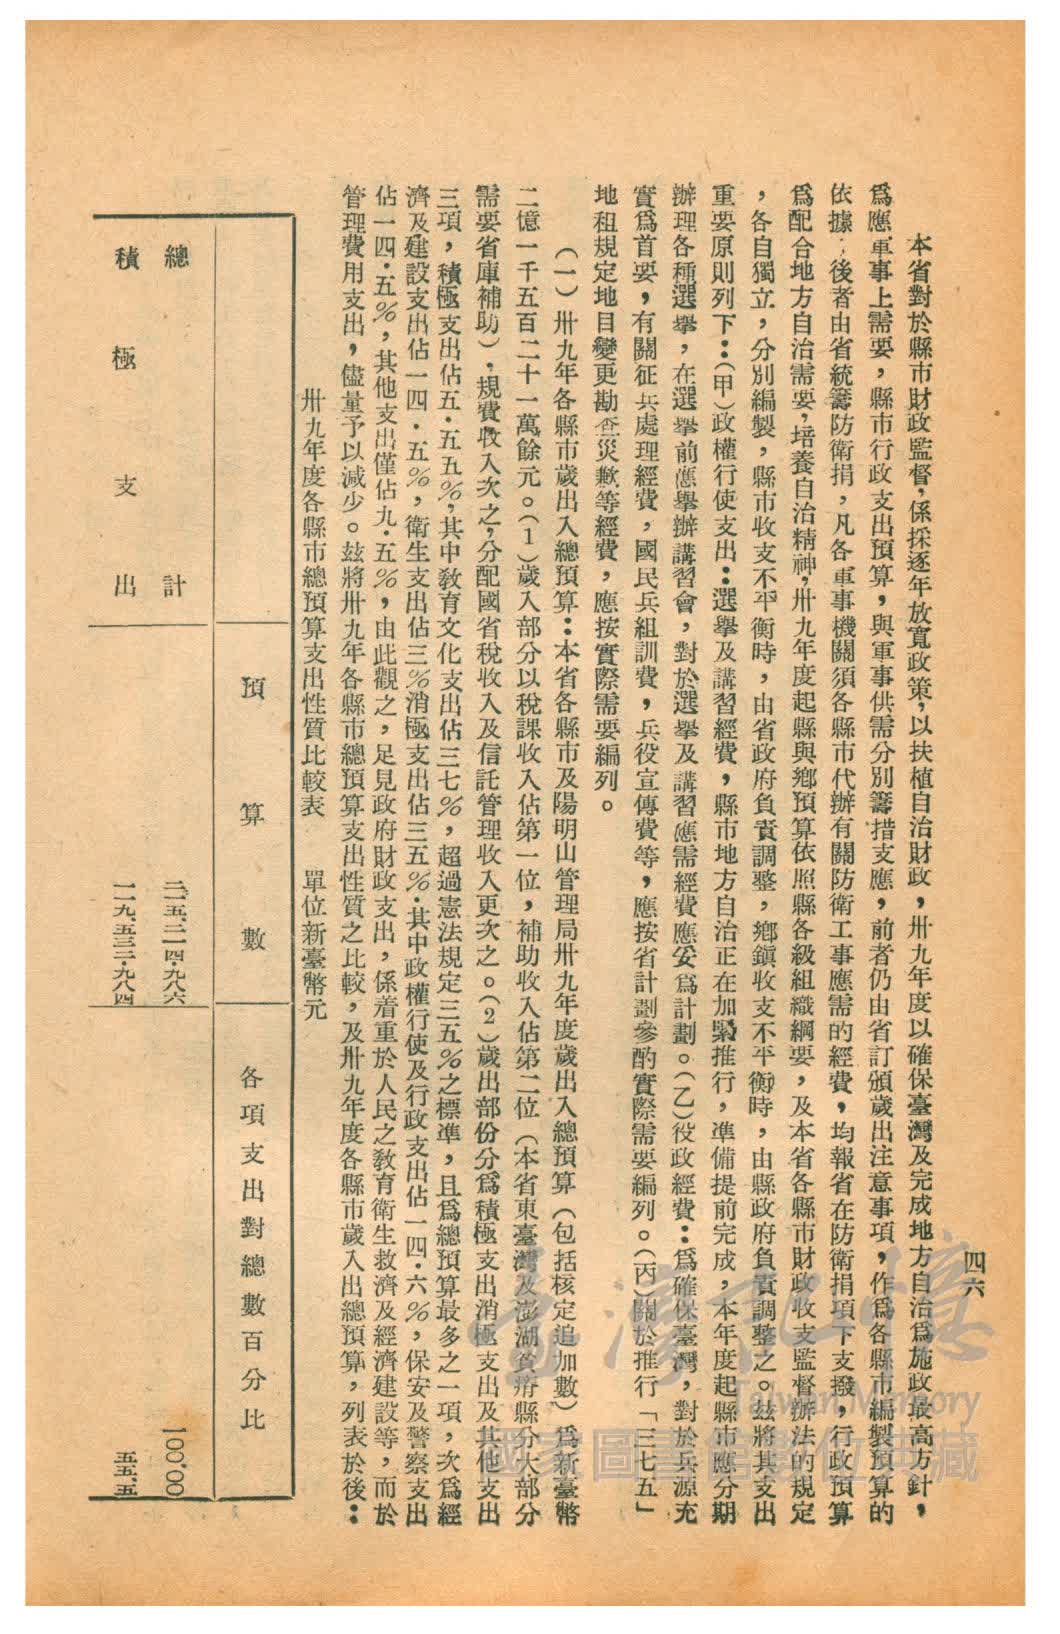 四六
本省對於縣市財政監督，係採逐年放寬政策，以扶植自治財政，卅九年度以確保臺灣及完成地方自治爲施政最高方針，
爲應軍事上需要，縣市行政支出預算，與軍事供需分別籌措支應，前者仍由省訂頒歲出注意事項，作爲各縣市編製預算的
依據，後者由省統籌防衛捐，凡各軍事機關須各縣市代辦有關防衛工事應需的經費，均報省在防衛捐項下支撥，行政預算
爲配合地方自治需要，培養自治精神，卅九年度起縣與鄉預算依照縣各級組織綱要，及本省各縣市財政收支監督辦法的規定
，各自獨立，分別編製，縣市收支不平衡時，由省政府負責調整，鄉鎭收支不平衡時，由縣政府負責調整之。玆將其支出
重要原則列下：（甲）政權行使支出：選舉及講習經費，縣市地方自治正在加緊推行，準備提前完成，本年度起縣市應分期
辦理各種選舉，在選舉前應舉辦講習會，對於選舉及講習應需經費應妥爲計劃。（乙）役政經費：爲確保臺灣，對於兵源充
實爲首要，有關征兵處理經費，國民兵組訓費，兵役宣傳費等，應按省計劃參酌實際需要編列。（丙）關於推行「三七五」
地租規定地目變更勘查災歉等經費，應按實際需要編列。
（一）卅九年各縣市歲出入總預算：本省各縣市及陽明山管理局卅九年度歲出入總預算（包括核定追加數）爲新臺幣
二億一千五百二十一萬餘元。（1）歲入部分以稅課收入佔第一位，補助收入佔第二位（本省東臺灣及澎湖貧瘠縣分大部分
需要省庫補助），規費收入次之，分配國省稅收入及信託管理收入更次之。（2）歲出部份分爲積極支出消極支出及其他支出
三項，積極支出佔五•五五％，其中敎育文化支出佔三七％，超過憲法規定三五％之標準，且爲總預算最多之一項，次爲經
濟及建設支出佔一四•五％，衛生支出佔三％消極支出佔三五％•其中政權行使及行政支出佔一四•六％，保安及警察支出
佔一四•五％，其他支出僅佔九•五％，由此觀之，足見政府財政支出，係着重於人民之敎育衛生救濟及經濟建設等，而於
管理費用支出，儘量予以減少。玆將卅九年各縣市總預算支出性質之比較，及卅九年度各縣市歲入出總預算，列表於後：
卅九年度各縣市總預算支出性質比較表　單位新臺幣元
預算數　各項支出對總數百分比
總計　二一五、二一四•九八六　一〇〇•〇〇
積極支出　一一九、五三二•九八四　五五•五
臺灣記憶
Taiwan Memory
國家圖書館數位典藏